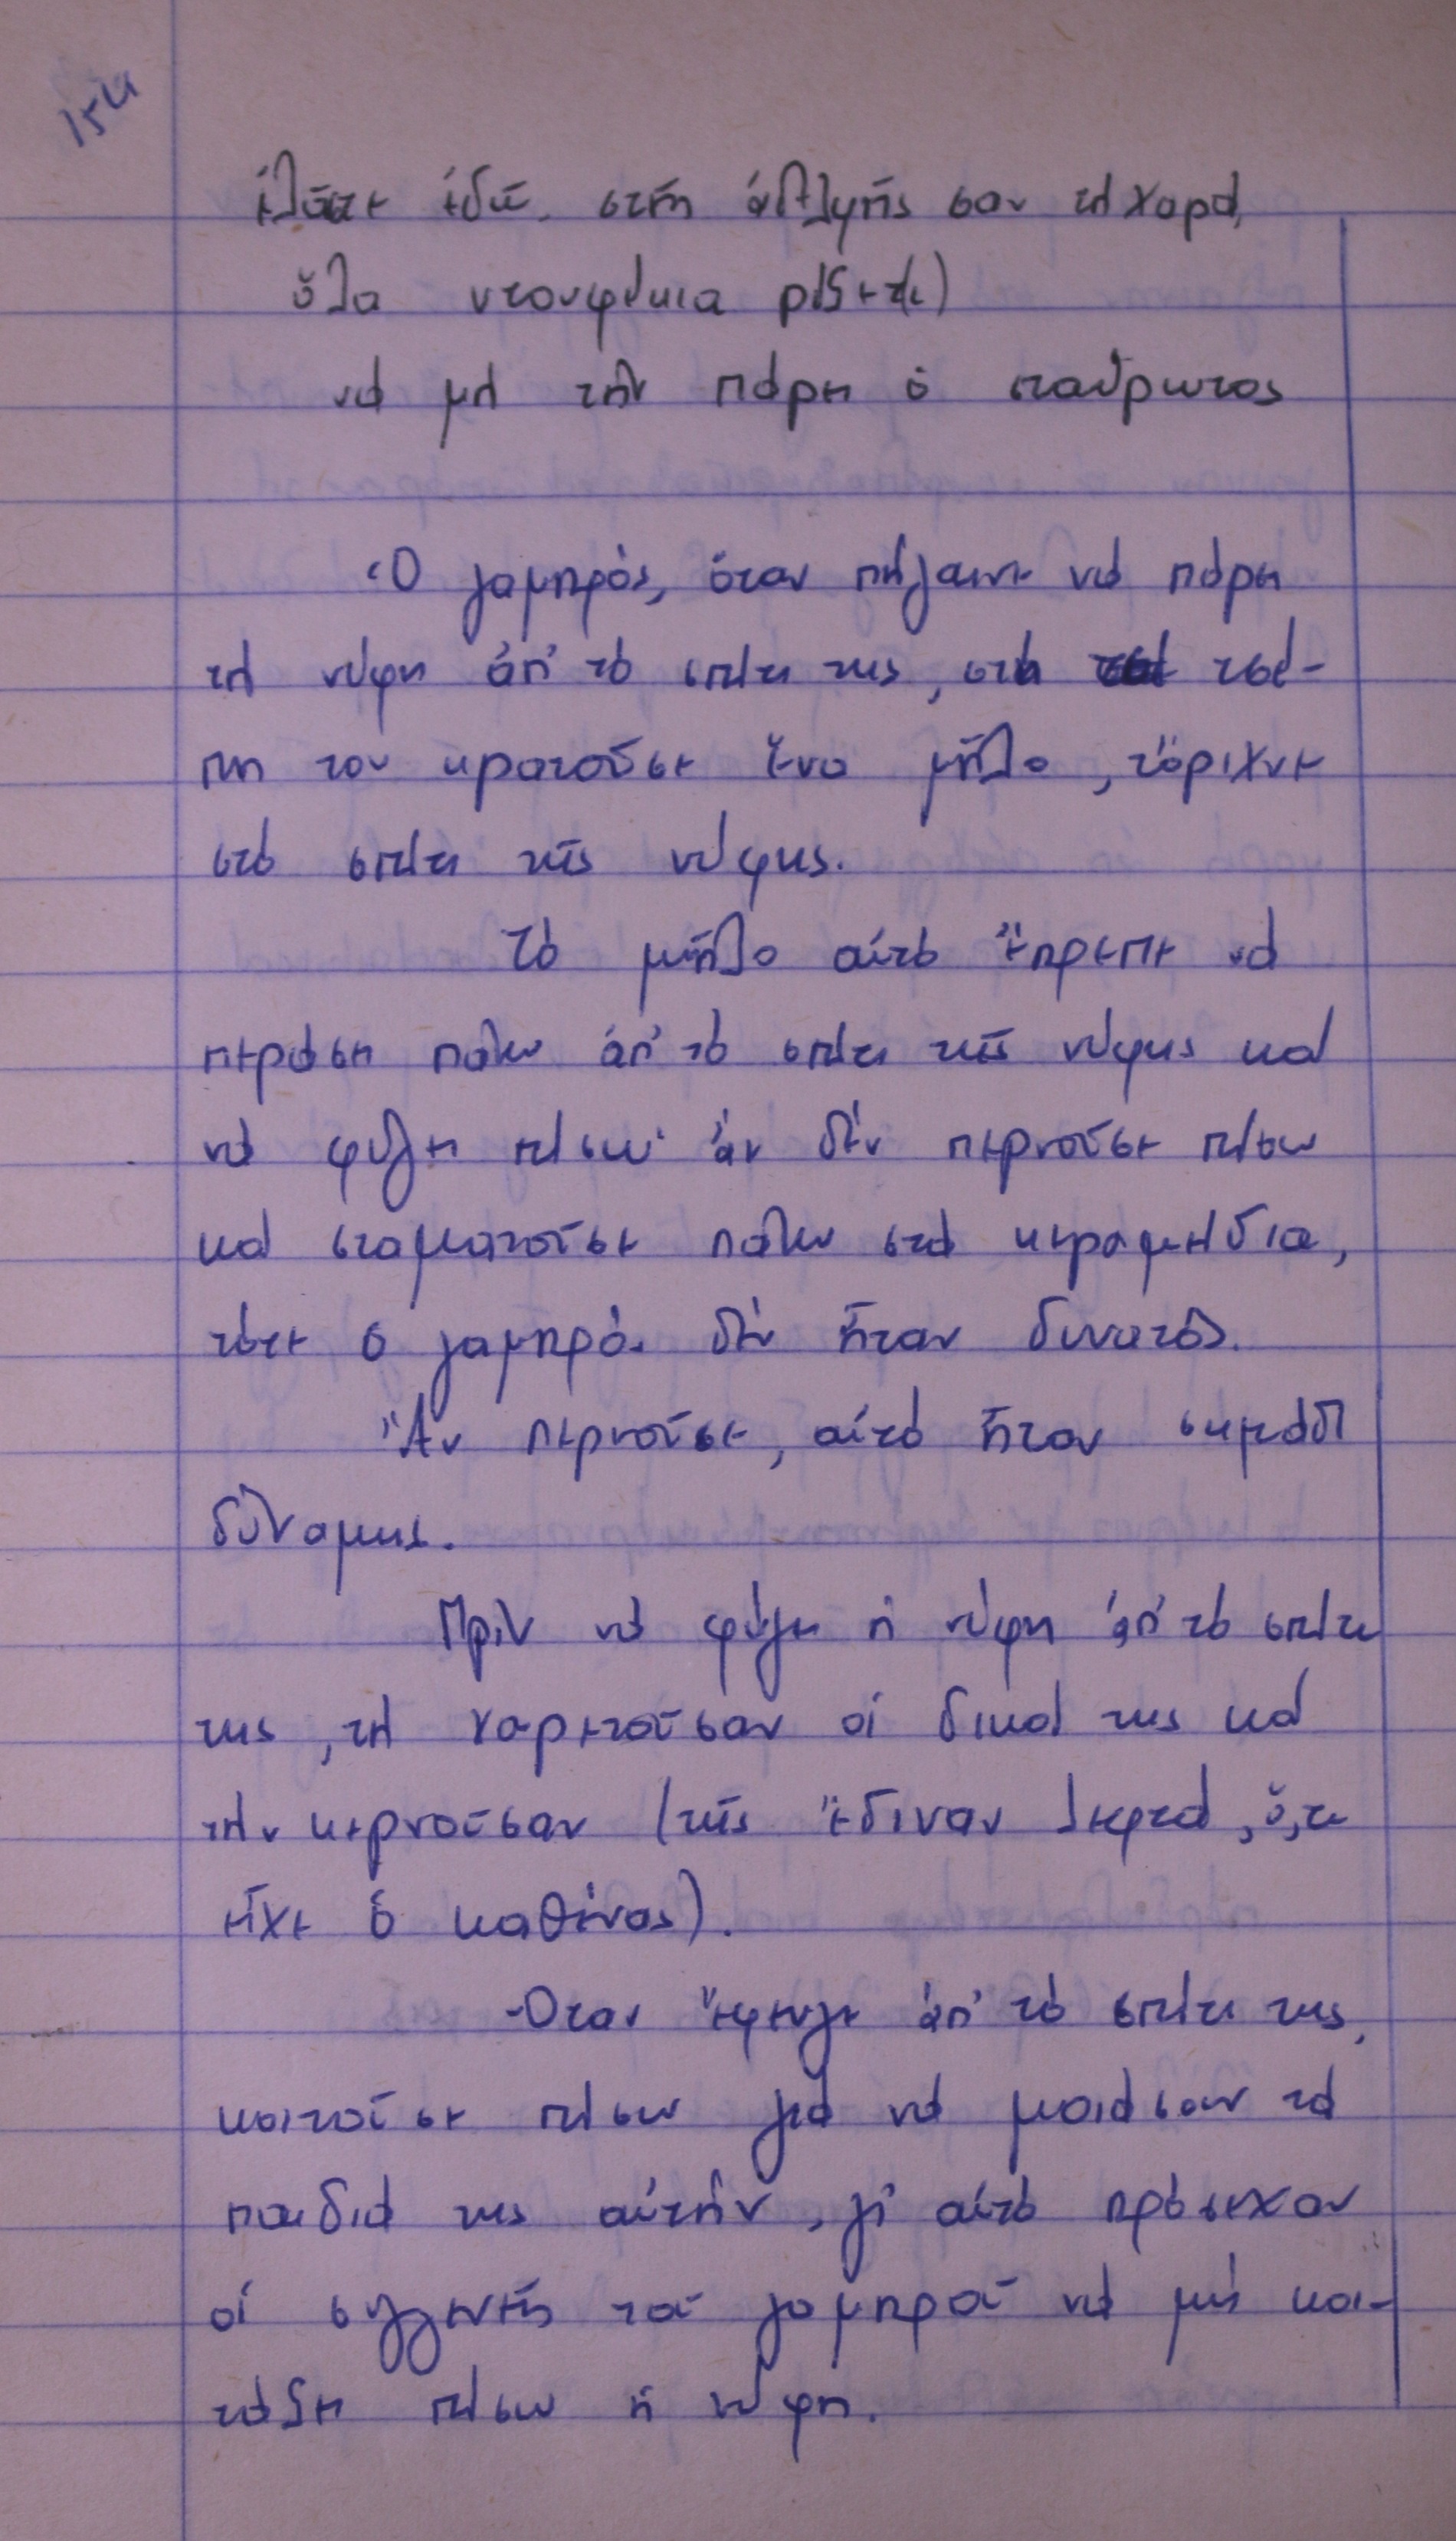 154
ἐλᾶστε ἐδῶ στῆ ἀδελφῆς σου τὴ χαρά,
ὅλα ντουφέκια ρίξετε)
νά μή τήν πάρη ὁ σταύρωτος
Ὁ γαμπρός, ὅταν πήγαινε νά πάρη
τή νύφη ἀπ' τό σπίτι της, στή τσέ-
πη του κρατοῦσε ἕνα μῆλο, τὄριχνε
στό σπίτι τῆς νύφης.
Τό μῆλο αὐτό ἔπρεπε νά
περάση πάνω ἀπ' τό σπίτι τῆς νύφης καί
νά φύγη πίσω· ἄν δέν περνοῦσε πίσω
καί σταματοῦσε πάνω στά κεραμίδια,
τότε ὁ γαμπρός δέν ἦταν δυνατός.
Ἄν περνοῦσε, αὐτό ἦταν σημάδι
δύναμης.
Πρίν νά φύγη ἡ νύφη ἀπ' τό σπίτι
της, τή χαιρετοῦσαν οἱ δικοί της καί
τήν κερνοῦσαν (τῆς ἔδιναν λεφτά, ὅ,τι
εἶχε ὁ καθένας).
Ὅταν ἔφευγε ἀπ' τό σπίτι της,
κοιτοῦσε πίσω γιά νά μοιάσουν τά
παιδιά της αὐτήν, γι' αὐτό πρόσεχαν
οἱ συγγενεῖς τοῦ γαμπροῦ νά μή κοι-
τάξη πίσω ἡ νύφη.